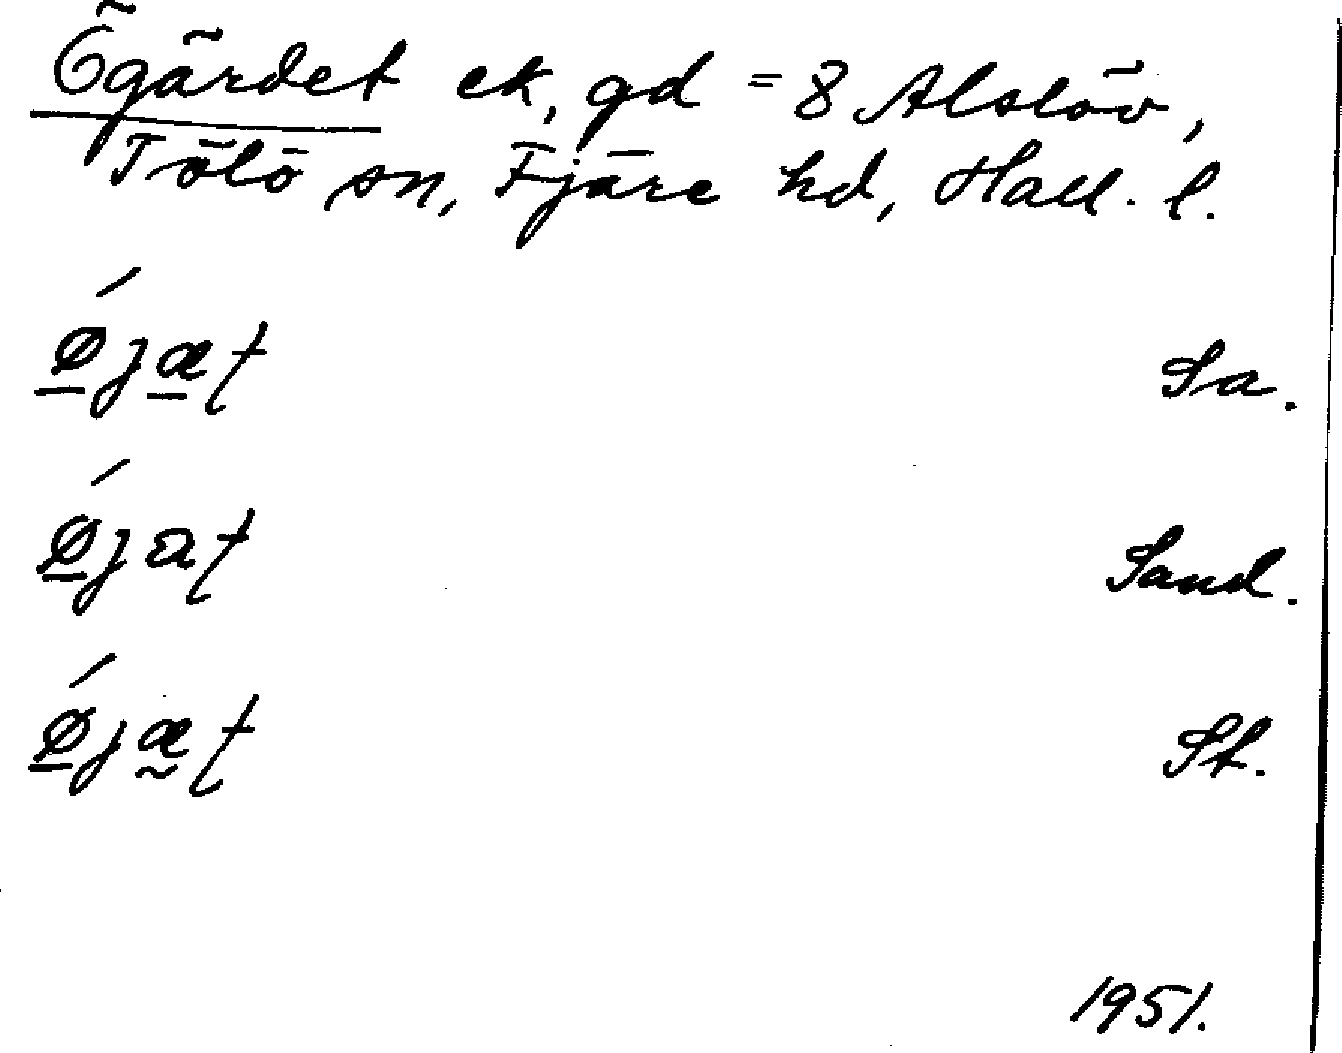 Ögärdet ek, gd = 8 Alslöv,
Tölö sn, Fjäre hd, Hall. l.
ǿ̱jæ̱ƫ Sa.
ǿ̱jaƫ Sand.
ǿ̱jæ̰ƫ St.
1951.